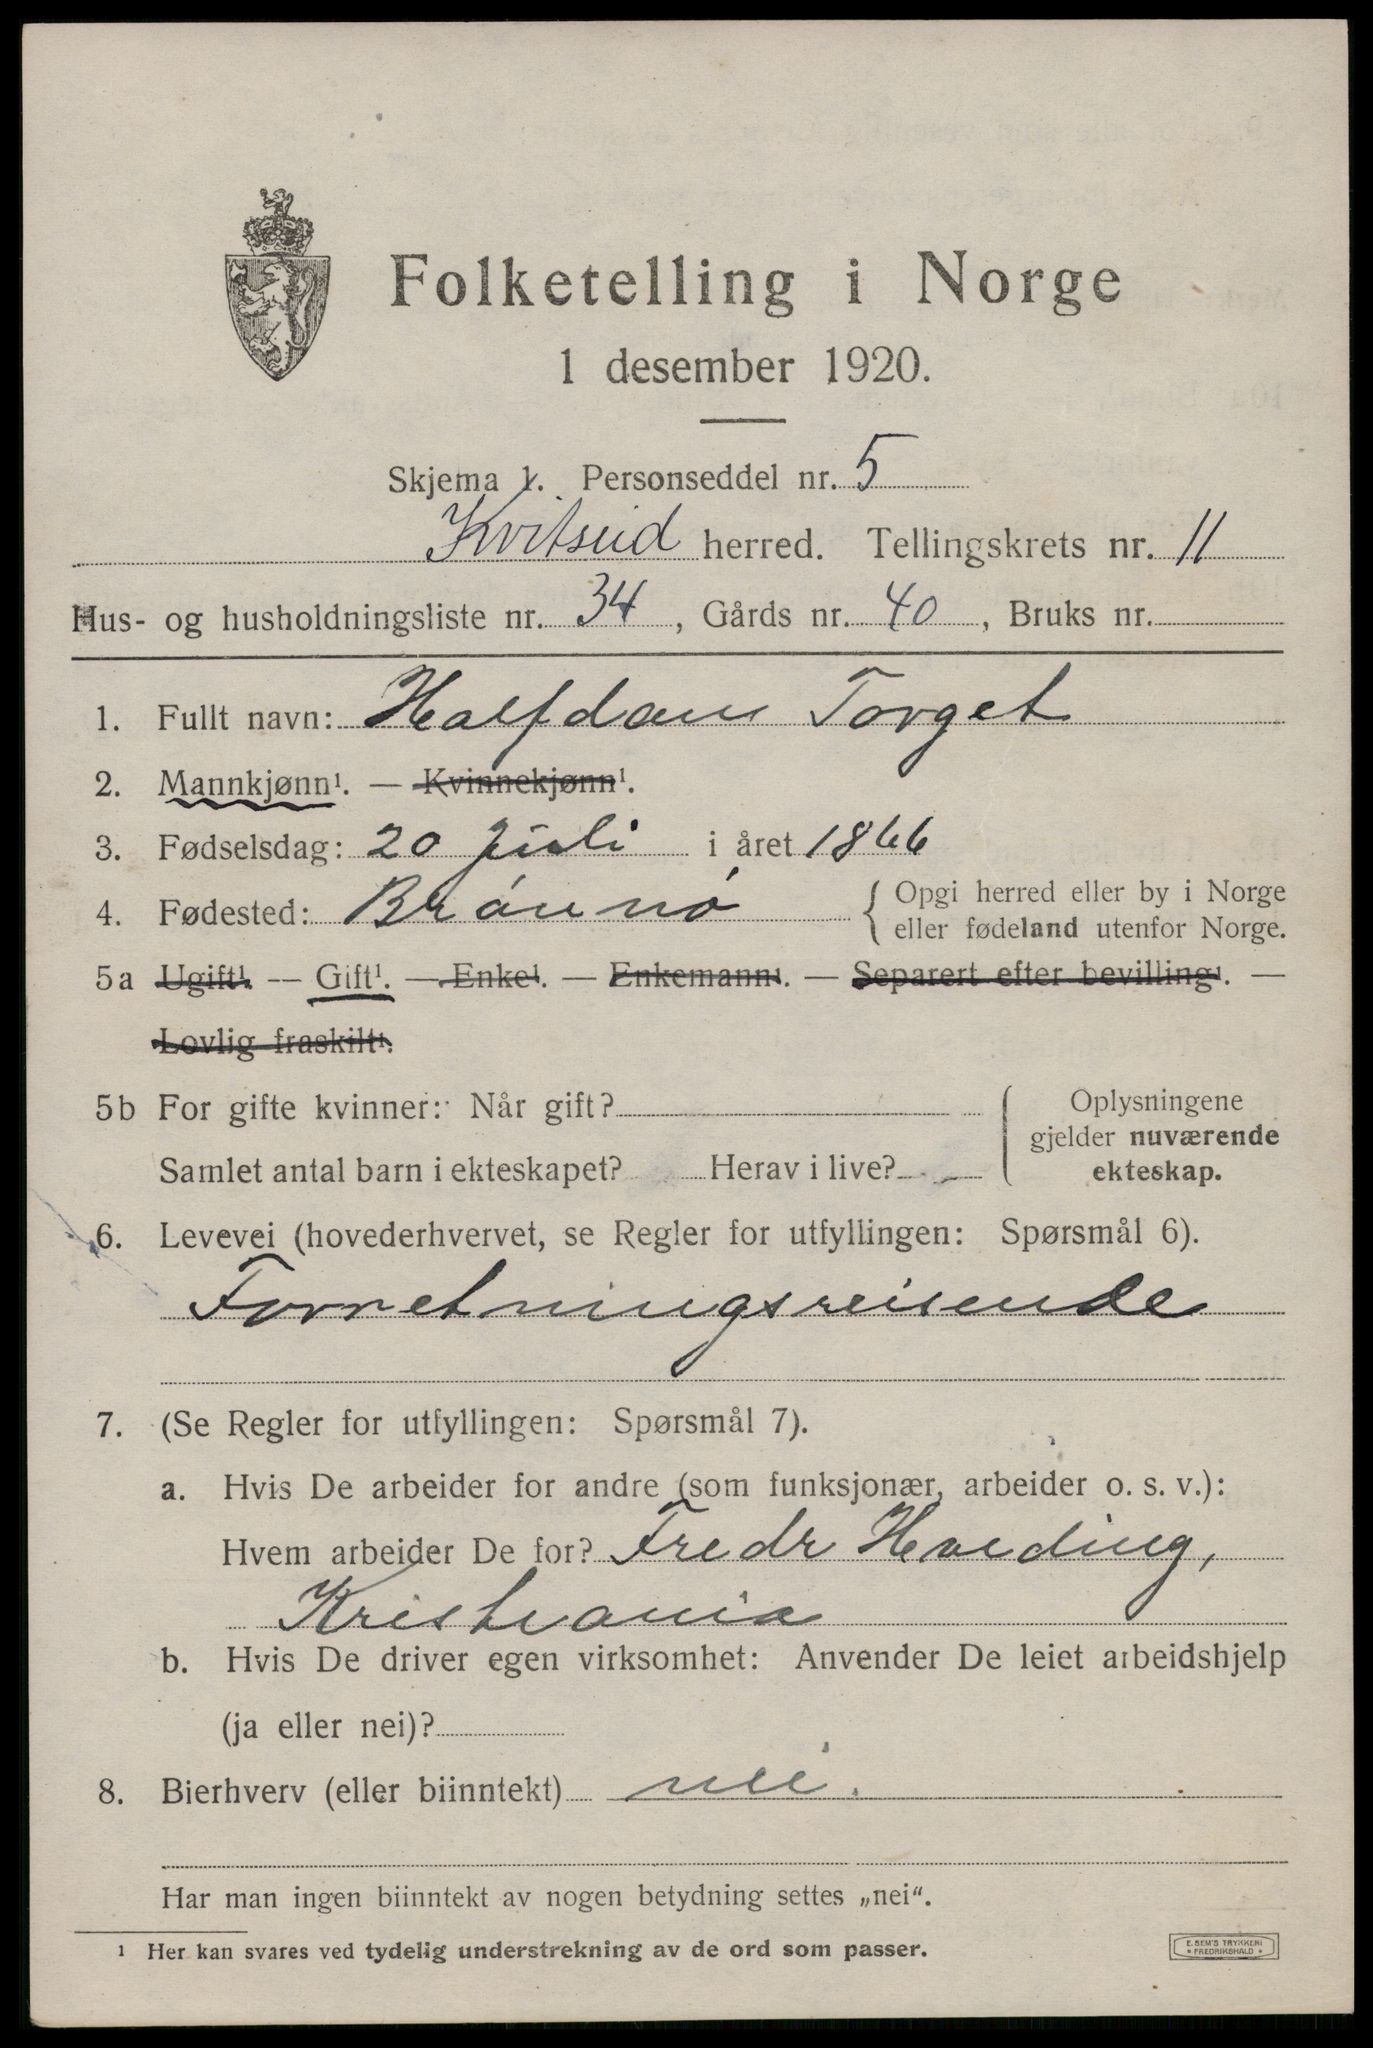 Folketelling i Norge
1 desember 1920.
Skjema 1. Personseddel nr. 5
Kvitseid herred. Tellingskrets nr. 11
Hus- og husholdningsliste nr. 34, Gårds nr. 40, Bruks nr.
1. Fullt navn: Halfdan Torget
2. Mannkjønn¹. — Kvinnekjønn¹.
3. Fødselsdag: 20 Juli i året 1866
4. Fødested: Brónnó { Opgi herred eller by i Norge
eller fødeland utenfor Norge.
5a Ugift¹. — Gift¹. — Enke¹. — Enkemann¹. — Separert efter bevilling¹. —
Lovlig fraskilt¹.
5b For gifte kvinner: Når gift? { Oplysningene
gjelder nuværende
Samlet antal barn i ekteskapet? Herav i live? ekteskap.
6. Levevei (hovederhvervet, se Regler for utfyllingen: Spørsmål 6).
Forretningsreisende
7. (Se Regler for utfyllingen: Spørsmål 7).
a. Hvis De arbeider for andre (som funksjonær, arbeider o. s. v.):
Hvem arbeider De for? Fredr Hveding,
Kristiania
b. Hvis De driver egen virksomhet: Anvender De leiet arbeidshjelp
(ja eller nei)?
8. Bierhverv (eller biinntekt) nei.
Har man ingen biinntekt av nogen betydning settes „nei“.
¹ Her kan svares ved tydelig understrekning av de ord som passer.
E. SEM'S TRYKKERI
• FREDRIKSHALD •